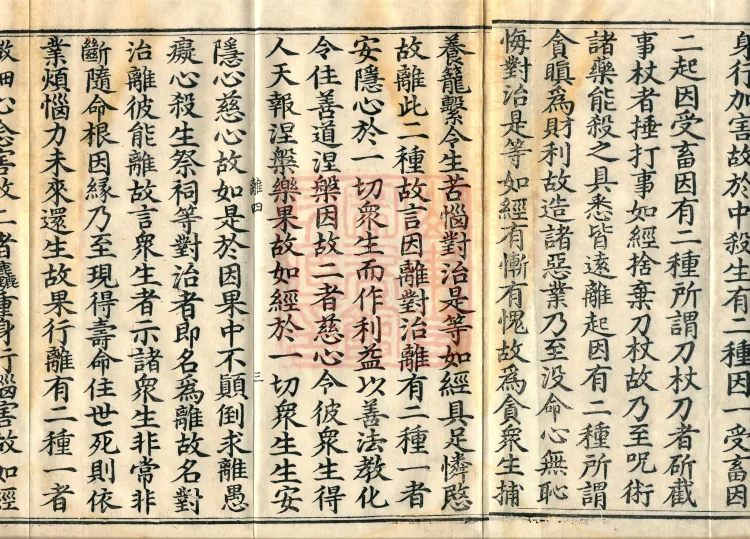 身行加害故於中殺生有二種因一受畜因
二起因受畜因有二種所謂刀杖刀者斫截
事杖者捶打事如經捨棄刀杖故乃至呪術
諸藥能殺之具悉皆遠離起因有二種所謂
貪瞋為財利故造諸惡業乃至没命心無恥
悔對治是等如經有慚有愧故為貪衆生捕
養籠繫令生苦惱對治是等如經具足憐愍
故離此二種故言因離對治離有二種一者
安隱心於一切衆生而作利益以善法教化
令住善道涅槃因故二者慈心令彼衆生得
人天報涅槃樂果故如經於一切衆生生安
離四
三
隱心慈心故如是於因果中不顛倒求離愚
癡心殺生祭祠等對治者即名為離故名對
治離彼能離故言衆生者示諸衆生非常非
斷隨命根因緣乃至現得壽命住世死則依
業煩惱力未來還生故果行離有二種一者
微細心念害故二者麤重身行惱害故如經